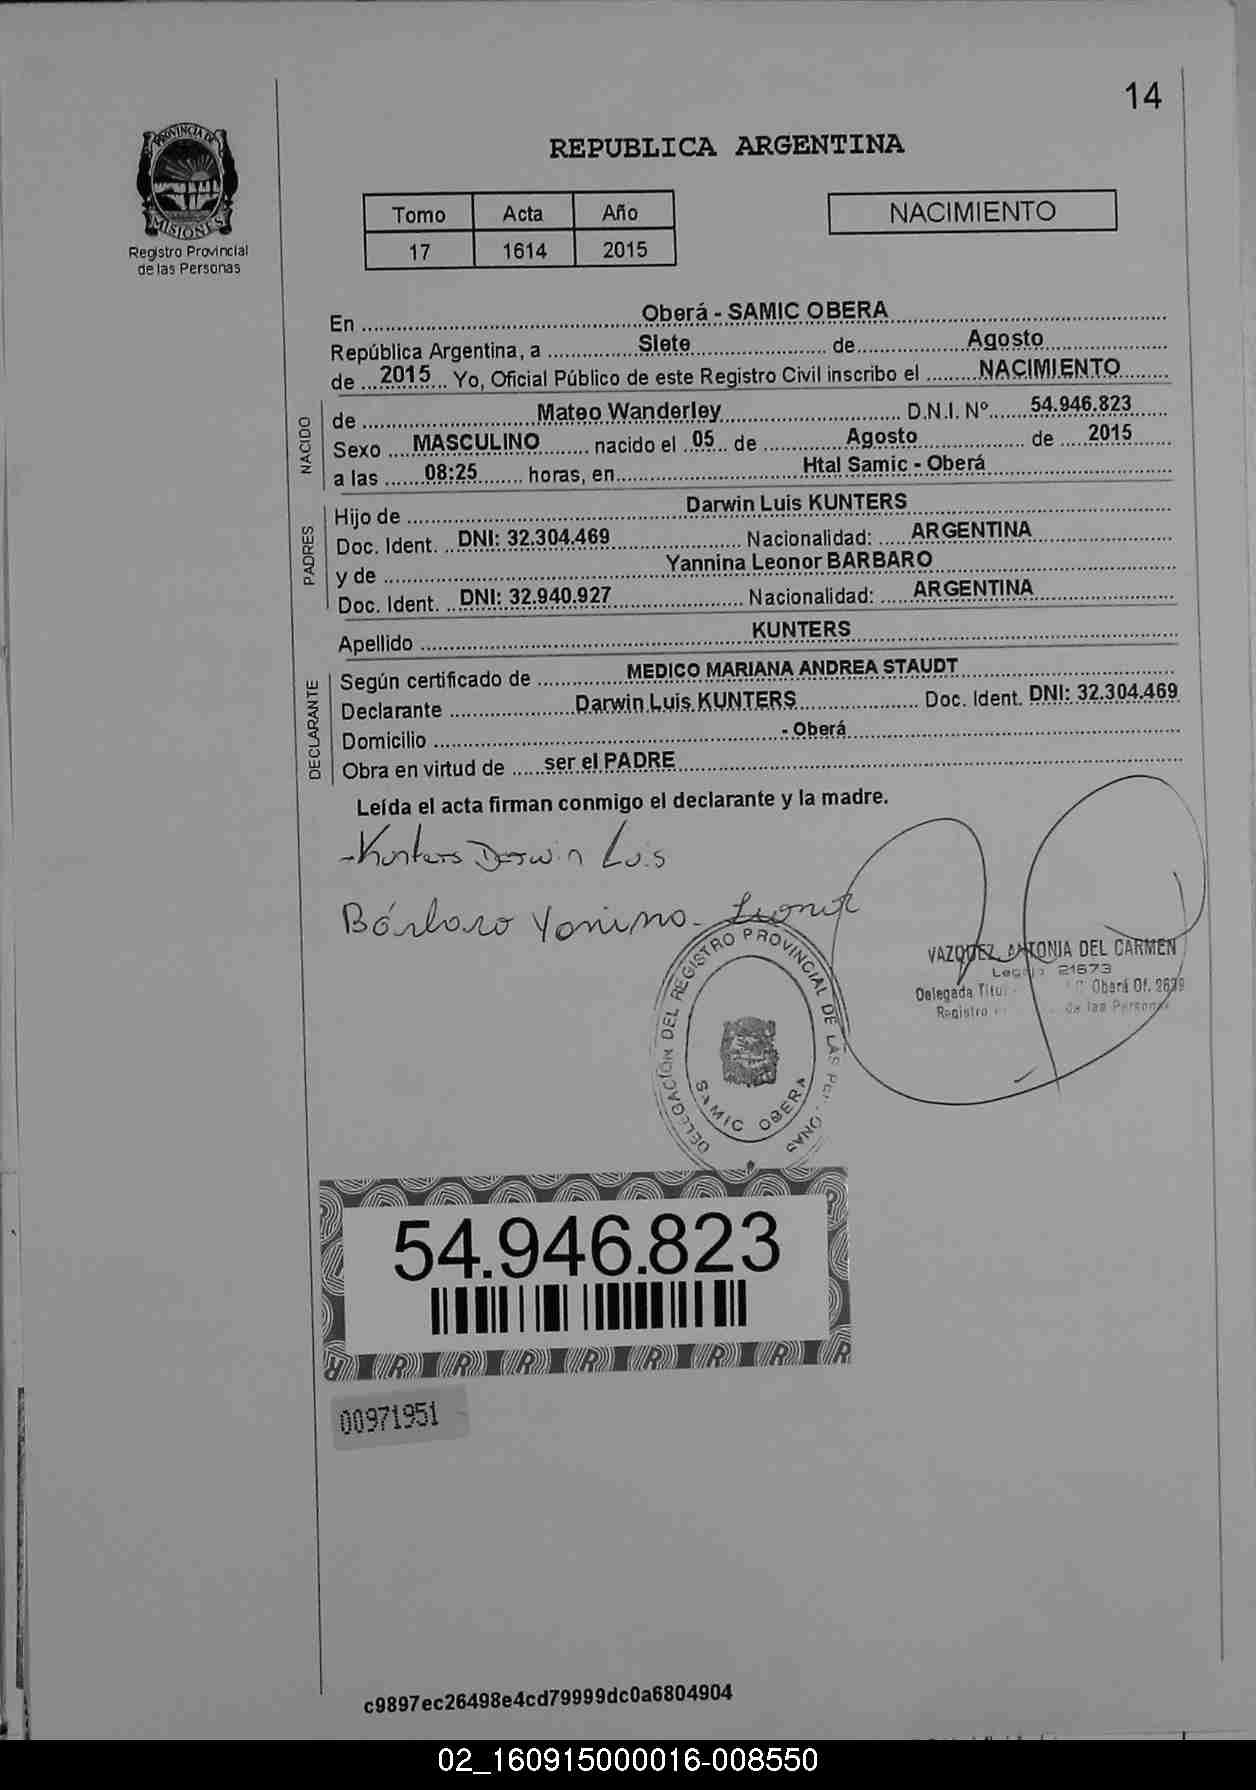 14
PROVINCIA DE
MISIONES
Registro Provincial
de las Personas
REPUBLICA ARGENTINA
Tomo Acta Año
17 1614 2015
NACIMIENTO
En Oberá - SAMIC OBERA
República Argentina, a Siete de Agosto
de 2015 Yo, Oficial Público de este Registro Civil inscribo el NACIMIENTO
NACIDO
de Mateo Wanderley D.N.I. Nº 54.946.823
Sexo MASCULINO nacido el 05 de Agosto de 2015
a las 08:25 horas, en Htal Samic - Oberá
PADRES
Hijo de Darwin Luis KUNTERS
Doc. Ident. DNI: 32.304.469 Nacionalidad: ARGENTINA
y de Yannina Leonor BARBARO
Doc. Ident. DNI: 32.940.927 Nacionalidad: ARGENTINA
Apellido KUNTERS
DECLARANTE
Según certificado de MEDICO MARIANA ANDREA STAUDT
Declarante Darwin Luis KUNTERS Doc. Ident. DNI: 32.304.469
Domicilio - Oberá
Obra en virtud de ser el PADRE
Leída el acta firman conmigo el declarante y la madre.
-Kunters Darwin Luis
Bárbaro Yanina Leonor
VAZQUEZ ANTONIA DEL CARMEN
21673
Delegada Oberá Of.
Registro de las
DELEGACIÓN DEL REGISTRO PROVINCIAL DE LAS
SAMIC OBERA
54.946.823
00971951
c9897ec26498e4cd79999dc0a6804904
02_160915000016-008550